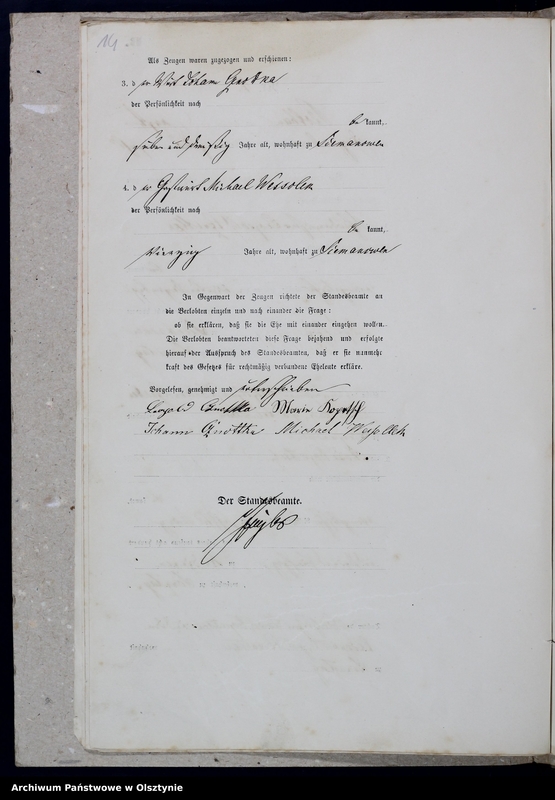 14
Als Zeugen waren zugezogen und erschienen:
3. der Wirt Johann Gnottka
der Persönlichkeit nach
be kannt,
sieben und dreißig Jahre alt, wohnhaft zu Siemanowen
4. der Gastwirt Michael Wessolek
der Persönlichkeit nach
be kannt,
vierzig Jahre alt, wohnhaft zu Siemanowen
In Gegenwart der Zeugen richtete der Standesbeamte an
die Verlobten einzeln und nach einander die Frage:
ob sie erklären, daß sie die Ehe mit einander eingehen wollen.
Die Verlobten beantworteten diese Frage bejahend und erfolgte
hierauf der Ausspruch des Standesbeamten, daß er sie nunmehr
kraft des Gesetzes für rechtmäßig verbundene Eheleute erkläre.
Vorgelesen, genehmigt und unterschrieben
Leopold Gnottka Marie
Johann Gnottka Michael Wessollek
Der Standesbeamte.
Archiwum Państwowe w Olsztynie